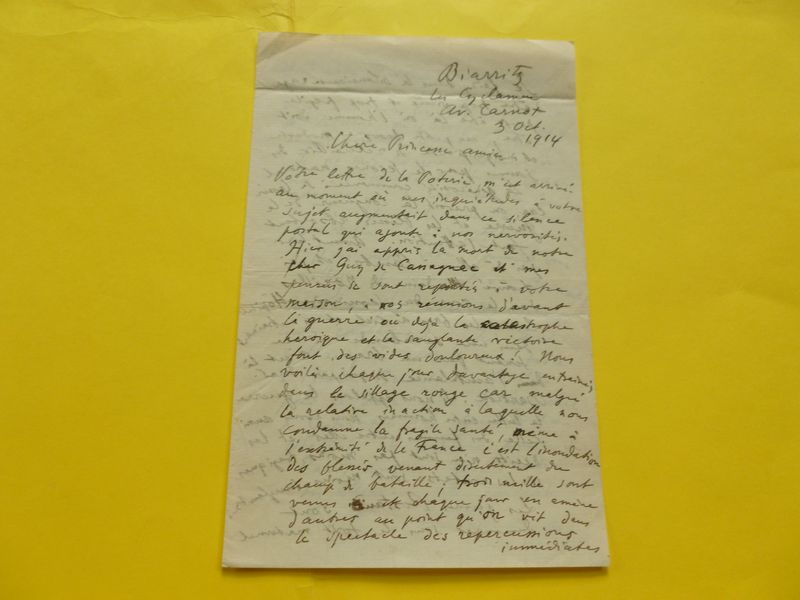 Biarritz
les Cyclamens
Av. Carnot
3 Oct.
1914
Chère Princesse amie
Votre lettre de la Poterie m'est arrivée
au moment où mes inquiétudes à votre
sujet augmentait dans ce silence
postal qui ajoute à nos nervosités.
Hier j'ai appris la mort de notre
cher Guy de Cassagnac et mes
pensées se sont reportés à votre
maison, à nos réunions d'avant
la guerre où déjà la catastrophe
héroïque et la sanglante victoire
font des vides douloureux. Nous
voilà chaque jour davantage entrainés
dans le sillage rouge car malgré
la relative inaction à laquelle nous
condamne la fragile santé, même à
l'extrémité de la France c'est l'inondation
des blessés venant directement du
champ de bataille; trois mille sont
venus et chaque jour en amène
d'autres au point qu'on vit dans
le spectacle des repercussions
immédiates